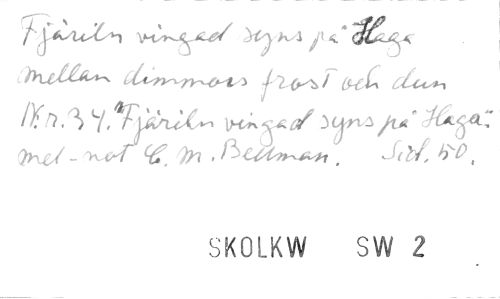 Fjäriln vingad syns på Haga
mellan dimmors frost och dun
N:r. 34. "Fjäriln vingad syns på Haga".
mel-not C. M. Bellman. Sid. 50.
SKOLKW SW 2